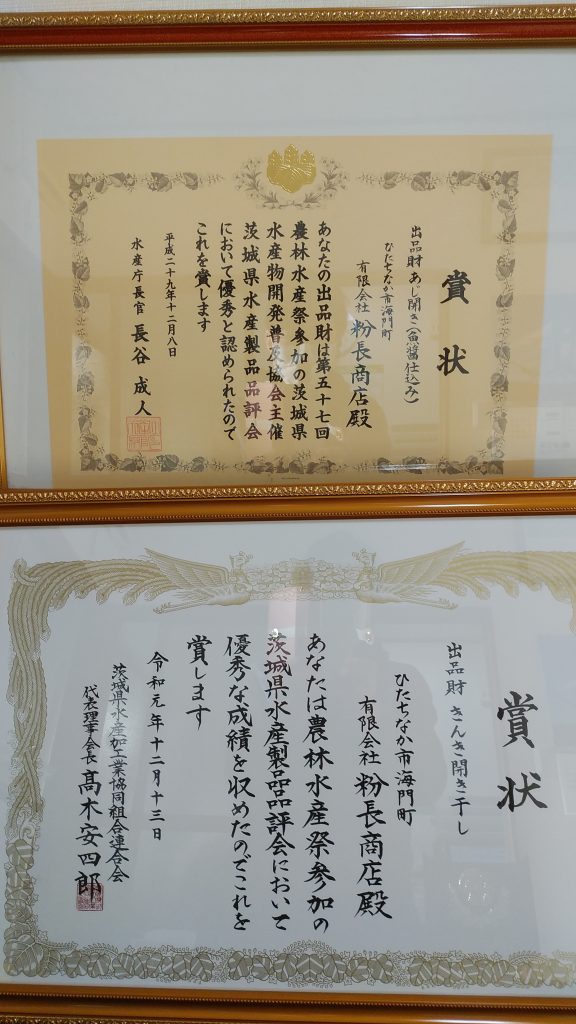 賞状
出品財 あじ開き(魚醤仕込み)
ひたちなか市海門町
有限会社 粉長商店殿
あなたの出品財は第五十七回
農林水産祭参加の茨城県
水産物開発普及協会主催
茨城県水産製品品評会
において優秀と認められたので
これを賞します
平成二十九年十二月八日
水産庁長官 長谷成人
賞状
出品財 きんき開き干し
ひたちなか市海門町
有限会社 粉長商店殿
あなたは農林水産祭参加の
茨城県水産製品品評会において
優秀な成績を収めたのでこれを
賞します
令和元年十二月十三日
茨城県水産加工業協同組合連合会
代表理事会長 髙木安四郎